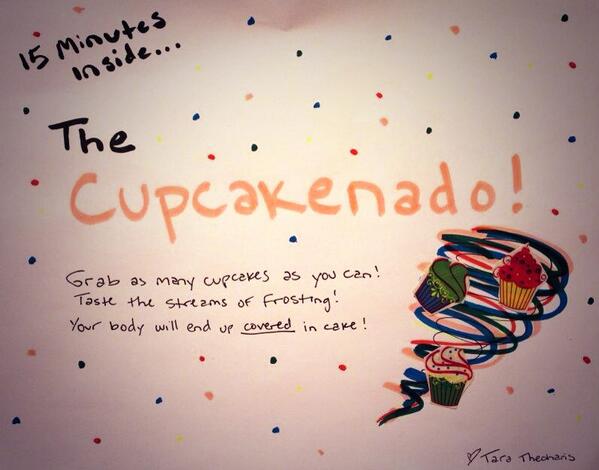 15 Minutes
Inside...
The
Cupcakenado!
Grab as many cupcakes as you can!
Taste the streams of frosting!
Your body will end up covered in cake!
♡ Tara Theoharis